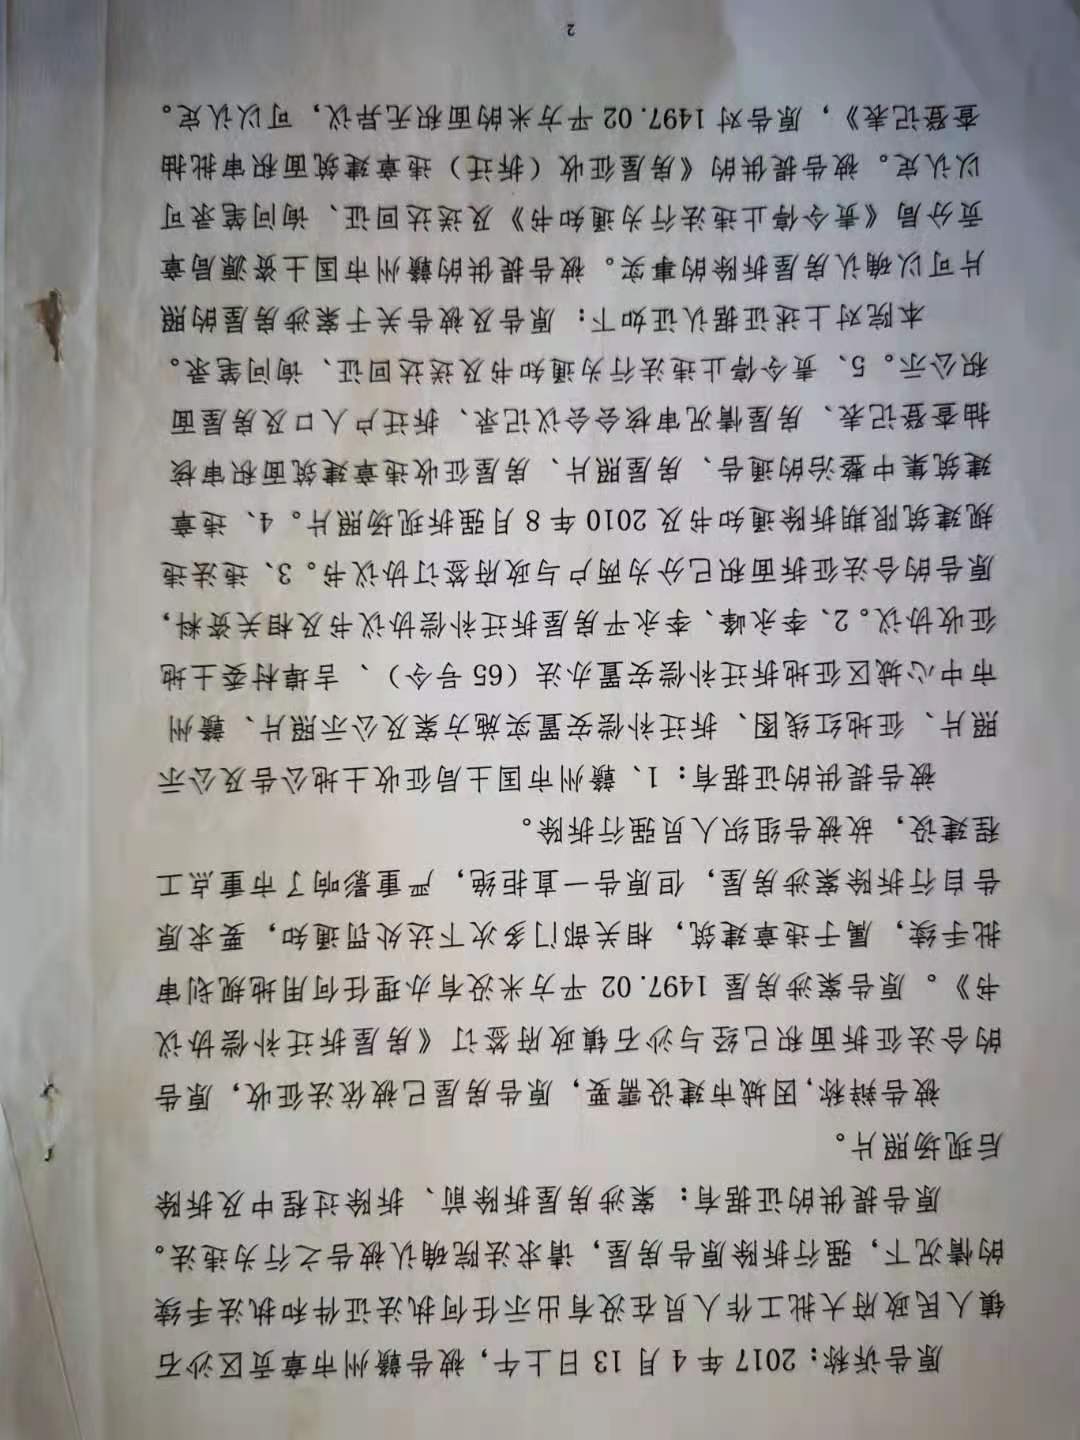 原告诉称：2017年4月13日上午，被告赣州市章贡区沙石
镇人民政府大批工作人员在没有出示任何执法证件和执法手续
的情况下，强行拆除原告房屋，请求法院确认被告之行为违法。
原告提供的证据有：案涉房屋拆除前、拆除过程中及拆除
后现场照片。
被告辩称，因城市建设需要，原告房屋已被依法征收，原告
的合法征拆面积已经与沙石镇政府签订《房屋拆迁补偿协议
书》。原告案涉房屋1497.02平方米没有办理任何用地规划审
批手续，属于违章建筑，相关部门多次下达处罚通知，要求原
告自行拆除案涉房屋，但原告一直拒绝，严重影响了市重点工
程建设，故被告组织人员强行拆除。
被告提供的证据有：1、赣州市国土局征收土地公告及公示
照片、征地红线图、拆迁补偿安置实施方案及公示照片、赣州
市中心城区征地拆迁补偿安置办法（65号令）、吉埠村委土地
征收协议。2、李永峰、李永平房屋拆迁补偿协议书及相关资料，
原告的合法征拆面积已分为两户与政府签订协议书。3、违法违
规建筑限期拆除通知书及2010年8月强拆现场照片。4、违章
建筑集中整治的通告、房屋照片、房屋征收违章建筑面积审核
抽查登记表、房屋情况审核会会议记录、拆迁户人口及房屋面
积公示。5、责令停止违法行为通知书及送达回证、询问笔录。
本院对上述证据认证如下：原告及被告关于案涉房屋的照
片可以确认房屋拆除的事实。被告提供的赣州市国土资源局章
贡分局《责令停止违法行为通知书》及送达回证、询问笔录可
以认定。被告提供的《房屋征收（拆迁）违章建筑面积审批抽
查登记表》，原告对1497.02平方米的面积无异议，可以认定。
2